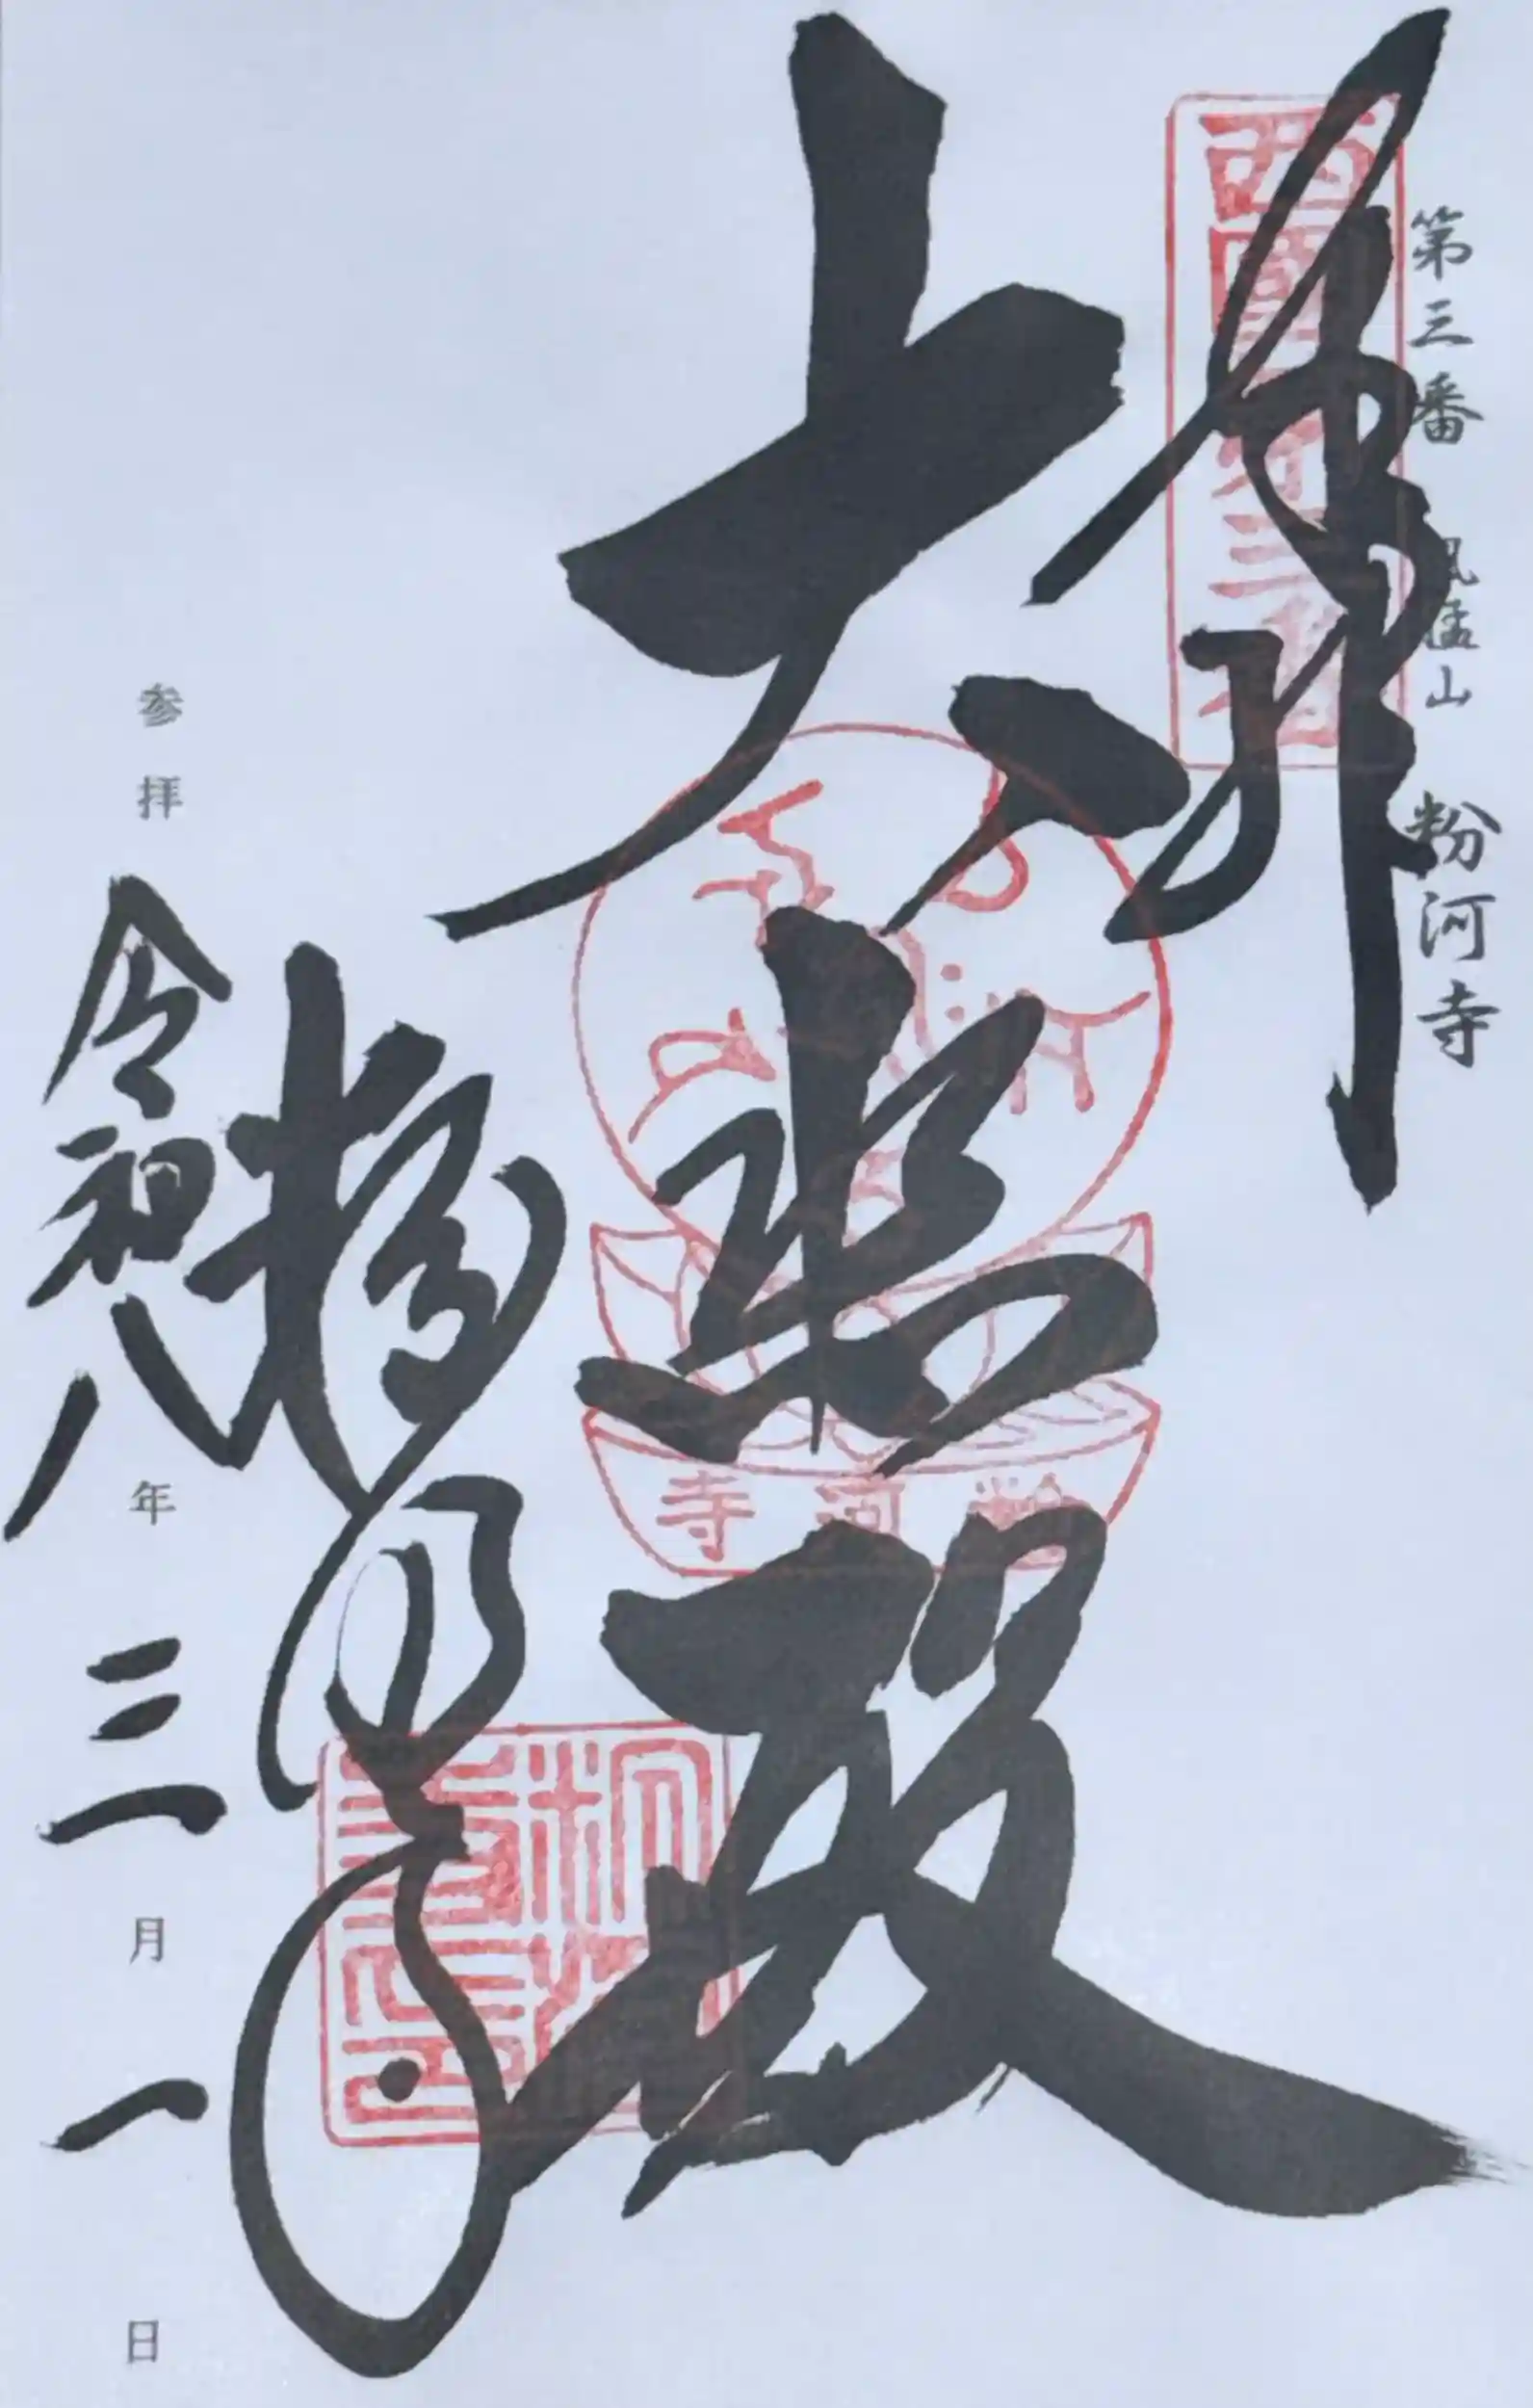 第三番 風猛山 粉河寺
西國第三番
奉拝
大悲殿
粉河寺
粉河寺
参拝 令和八年三月一日